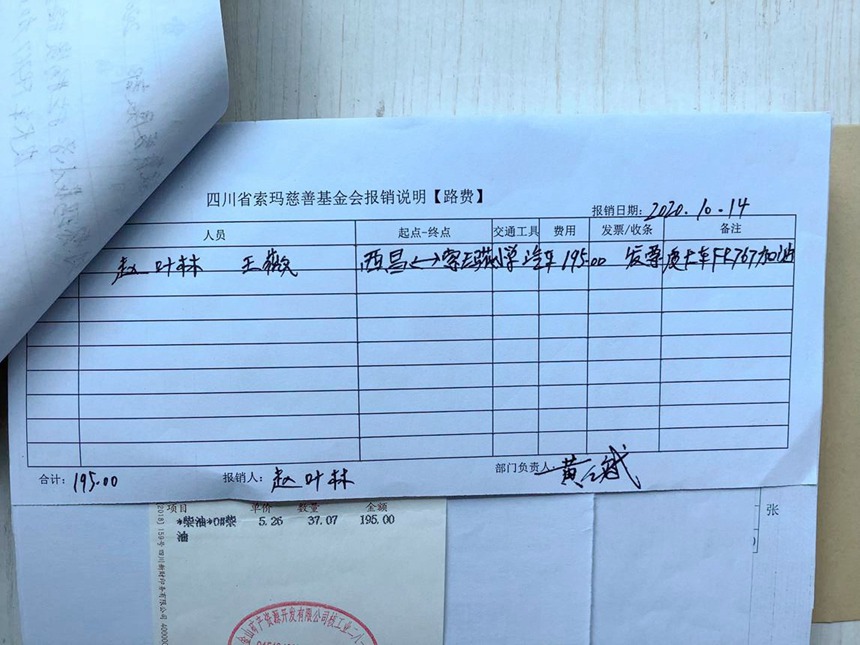 四川省索玛慈善基金会报销说明【路费】
报销日期：2020.10.14
人员 起点-终点 交通工具 费用 发票/收条 备注
赵叶林 王 西昌<->索玛小学 汽车 195.00 发票 皮卡车 767加油
合计：195.00 报销人：赵叶林 部门负责人：黄
项目 单价 数量 金额
*柴油*0#柴油 5.26 37.07 195.00
张
金山矿产资源开发有限公司核工业二八